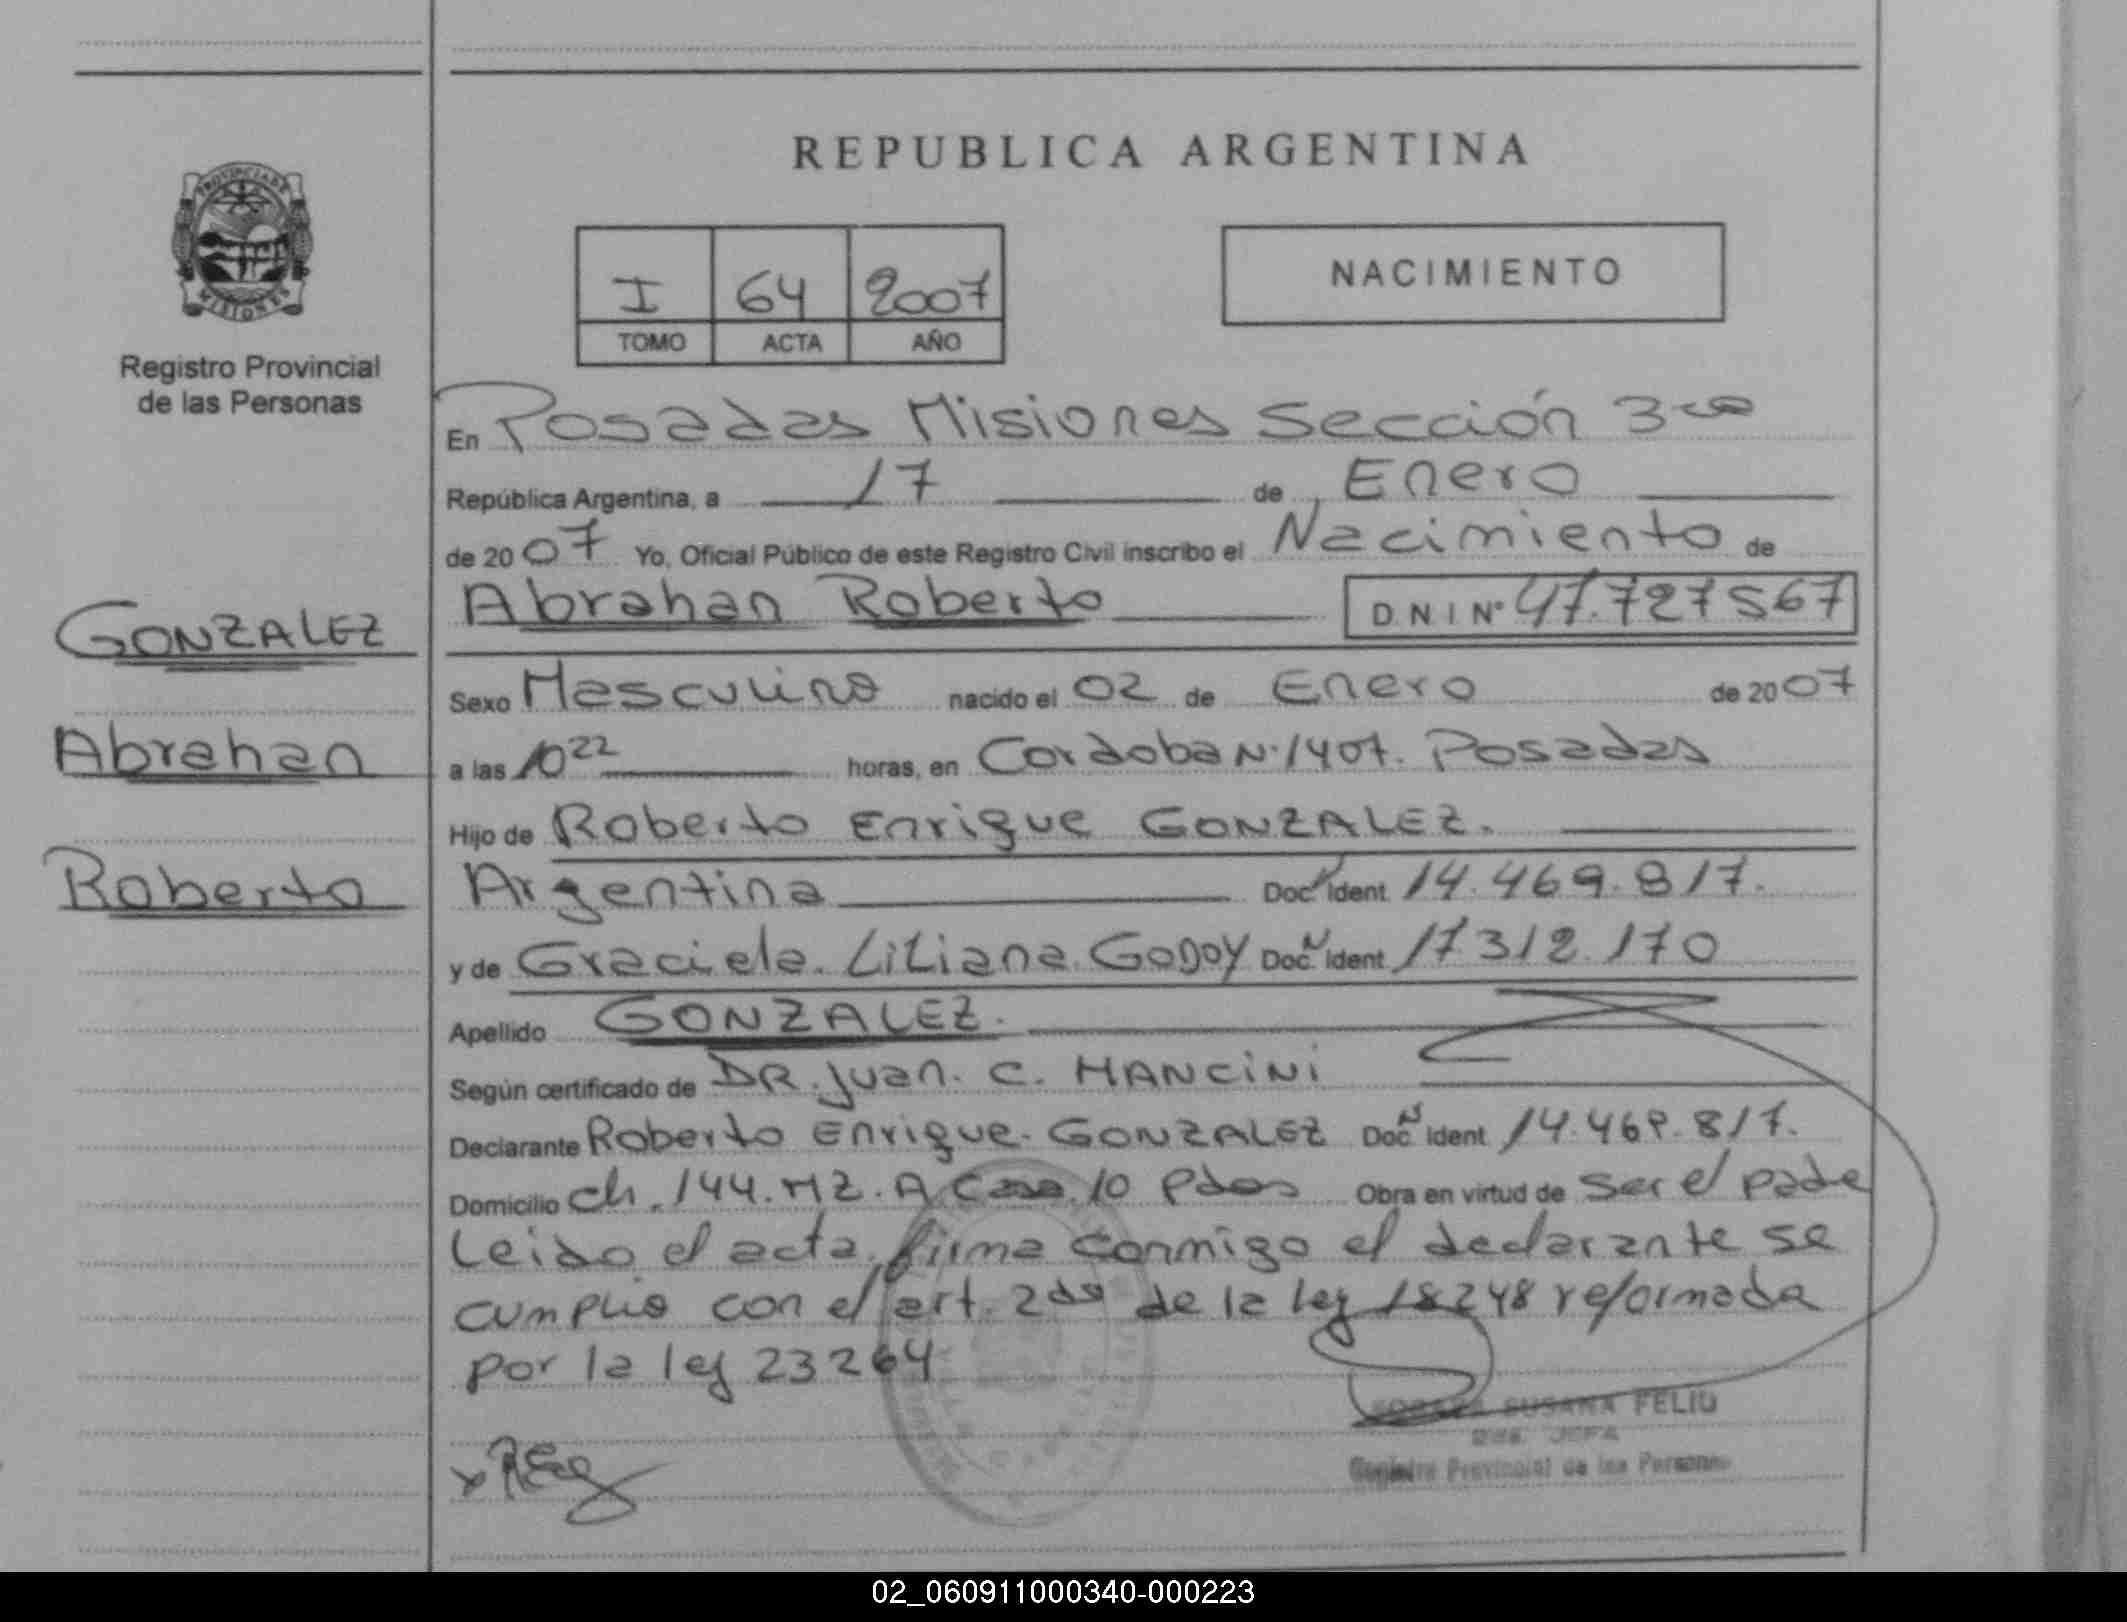 REPUBLICA ARGENTINA
PROVINCIA DE
MISIONES
Registro Provincial
de las Personas
I 64 2007
TOMO ACTA AÑO
NACIMIENTO
En Posadas Misiones Sección 3ra
República Argentina, a 17 de Enero
de 20 07 Yo, Oficial Público de este Registro Civil inscribo el Nacimiento de
Abrahan Roberto D.N.I Nº 47.727567
GONZALEZ
Abrahan
Roberto
Sexo Masculino nacido el 02 de Enero de 20 07
a las 10 22 horas, en Cordoba N. 1407. Posadas
Hijo de Roberto Enrique GONZALEZ.
Argentina Doc. Ident. 14.469.817.
y de Graciela Liliana GODOY Doc. N Ident. 17312.170
Apellido GONZALEZ.
Según certificado de DR. Juan. C. MANCINI
Declarante Roberto Enrique GONZALEZ Doc. N Ident. 14.469.817.
Domicilio ch. 144. MZ. A Casa 10 Pdas Obra en virtud de ser el pade
Leido el acta firma conmigo el declarante se
cumplio con el art. 2do de la ley 18248 reformada
por la ley 23264
SUSANA FELIU
JEFA
Registro Provincial de las Personas
02_060911000340-000223